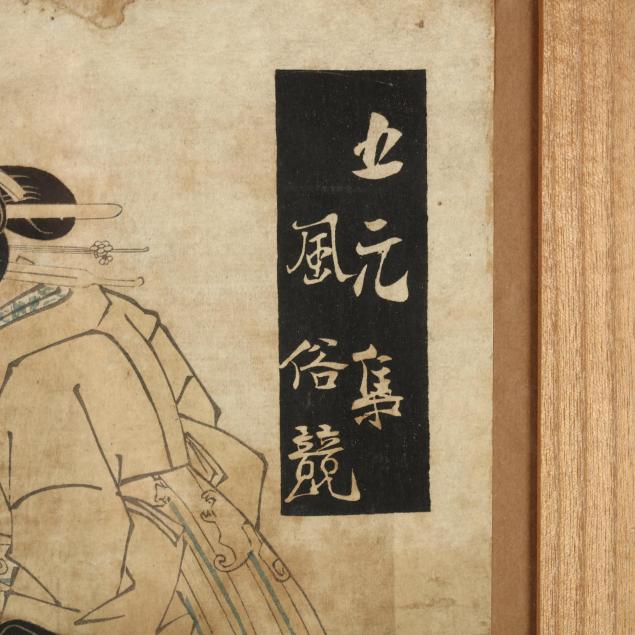 五元集
風俗競